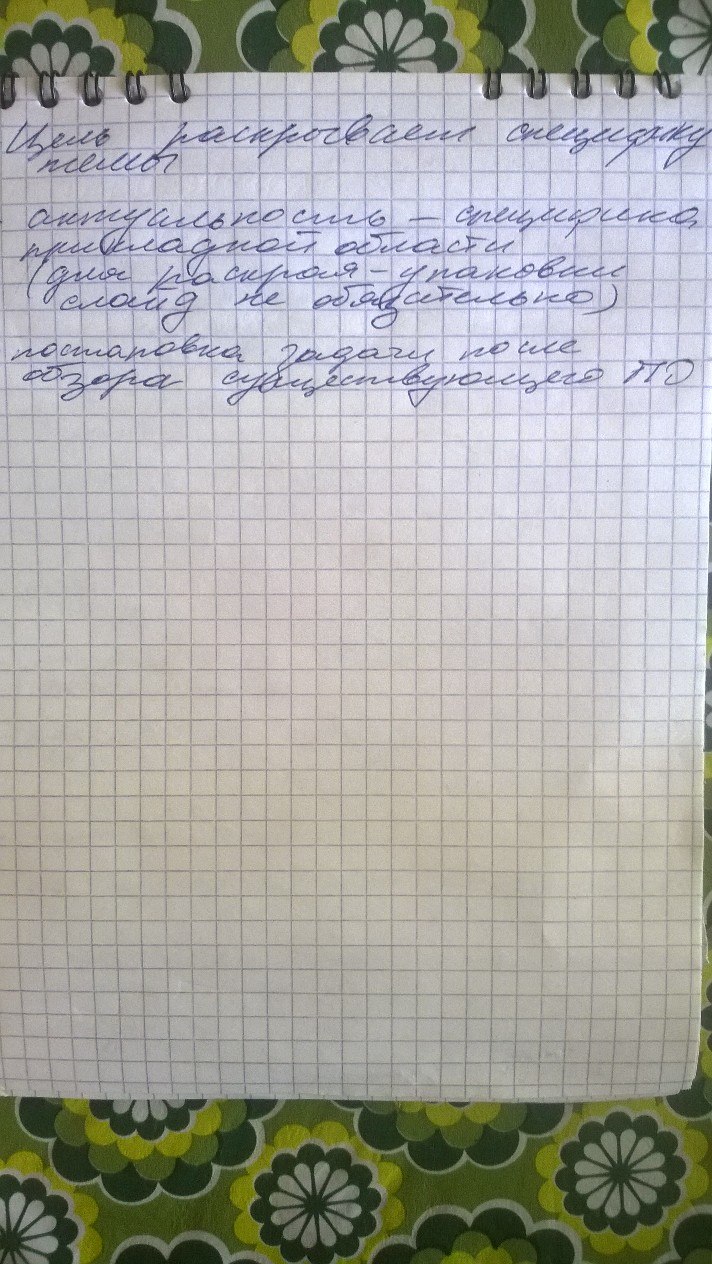 Цель раскрывает специфику
темы
актуальность – специфика
прикладной области
(для раскроя-упаковки
слайд не обязательно)
постановка задачи после
обзора существующего ПО